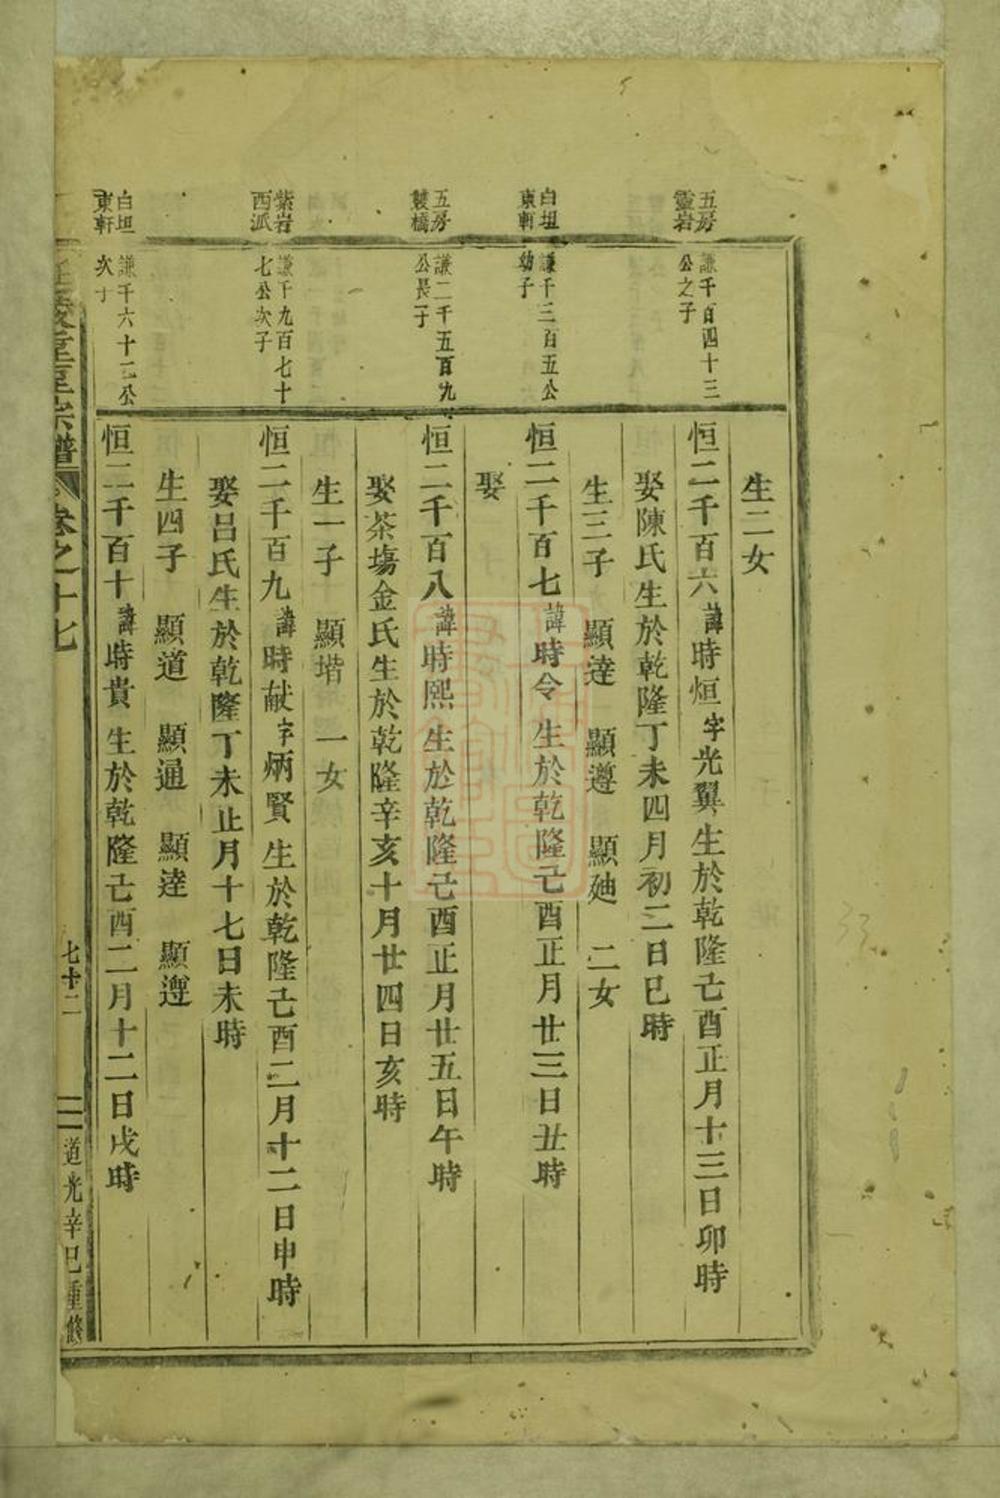 生二女
五房
靈岩
謙千百四十三
公之子
恒二千百六諱時烜字光翼生於乾隆己酉正月十三日卯時
娶陳氏生於乾隆丁未四月初二日巳時
生三子 顯達 顯遵 顯廸 二女
白坦
東軒
謙千三百五公
幼子
恒二千百七諱時令 生於乾隆己酉正月廿三日丑時
娶
五房
鼓橋
謙二千五百九
公長子
恒二千百八諱時熙 生於乾隆己酉正月廿五日午時
娶茶塲金氏生於乾隆辛亥十月廿四日亥時
生一子 顯堦 一女
紫岩
西派
謙千九百七十
七公次子
恒二千百九諱時献字炳賢 生於乾隆己酉二月十二日申時
娶呂氏生於乾隆丁未正月十七日未時
生四子 顯道 顯通 顯達 顯遵
白坦
東軒
謙千六十二公
次子
恒二千百十諱時貴 生於乾隆己酉二月十二日戌時
宗譜 卷之十七 七十二 道光辛巳重修